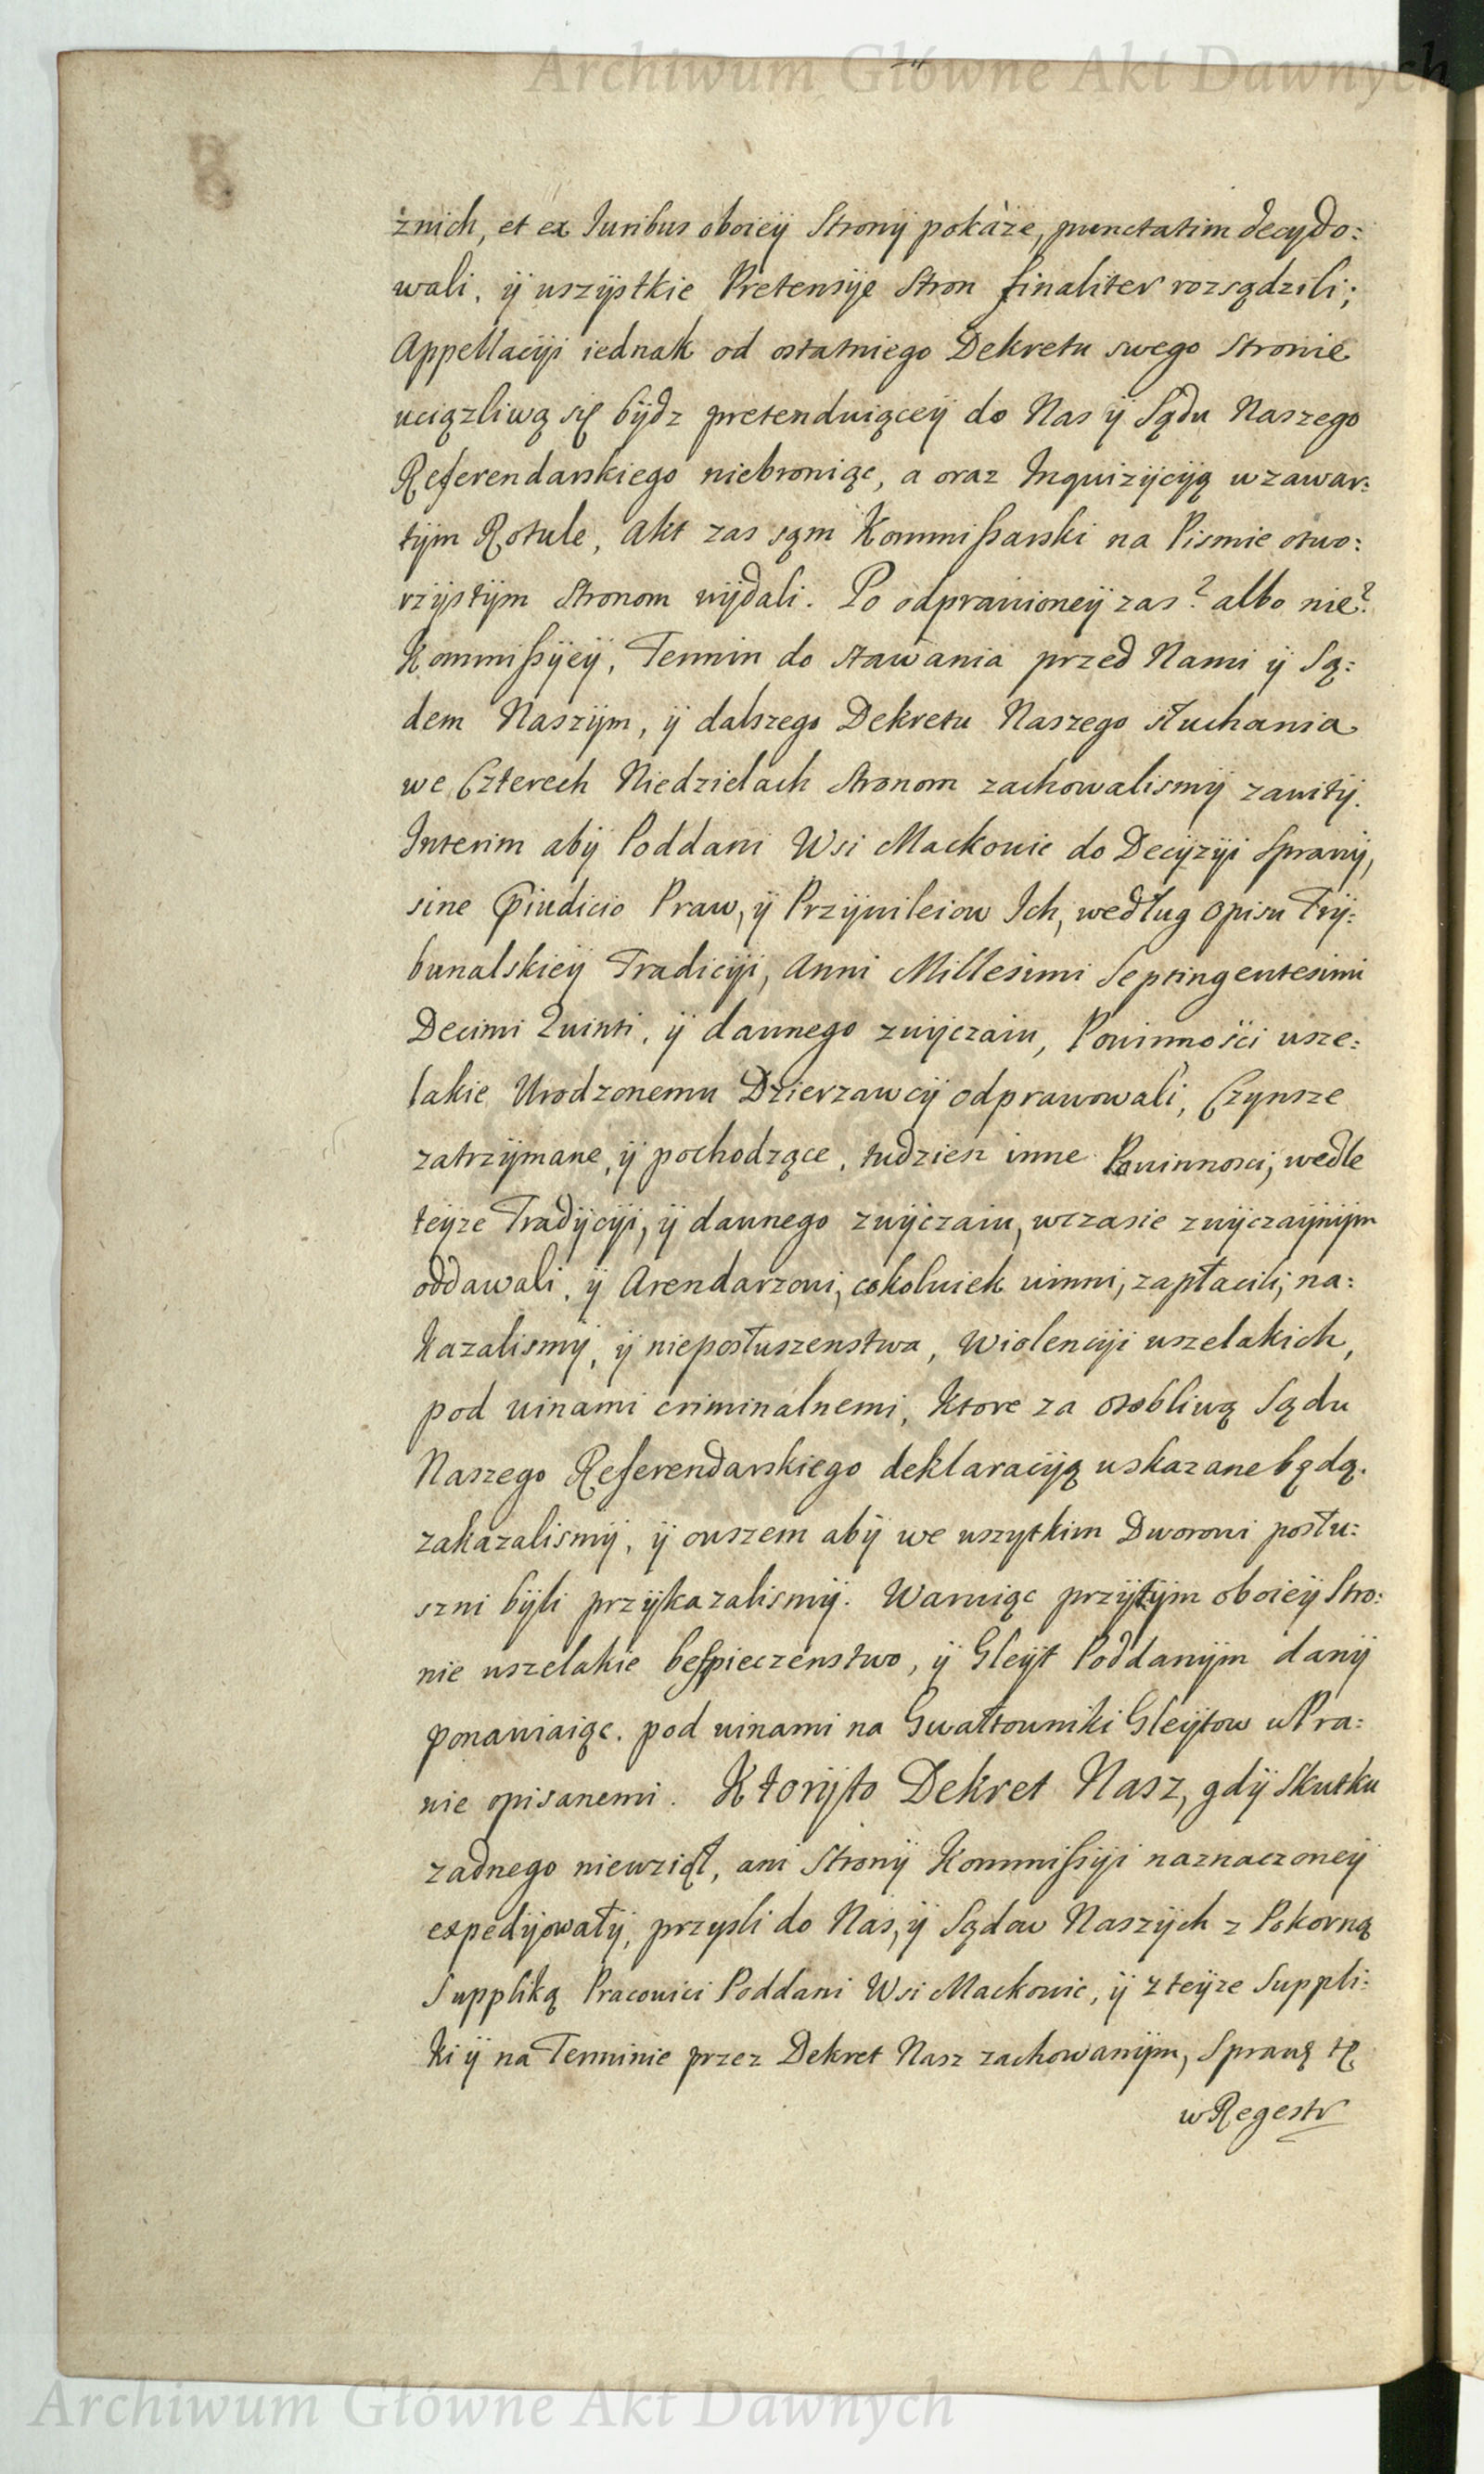 Archiwum Główne Akt Dawnych
żnich, et ex Iuribus oboieÿ Stronÿ pokàże, punctatim decydo:
wali, ÿ wszÿstkie Pretensÿe Stron finaliter rozsądzili;
Appellacÿi iednak od ostatniego Dekretu swego Stronie
uciązliwą się bÿdz pretenduiąceÿ do Nas ÿ Sądu Naszego
Referendarskiego niebroniąc, a oraz Inquizÿcÿą w zawar:
tÿm Rotule, Akt zas sąm Kommissarski na Pismie otwo:
rzÿstÿm Stronom wÿdali. Po odprawioneÿ zas? albo nie?
Kommissÿeÿ, Termin do stawania przed Nami ÿ Są:
dem Naszÿm, ÿ dalszego Dekretu Naszego słuchania
we Czterech Niedzielach stronom zachowalismÿ zawitÿ.
Interim abÿ Poddani Wsi Mackowic do Decÿzÿi Sprawÿ,
sine Pjudicio Praw, ÿ Przÿwileiow Ich, według Opisu Trÿ:
bunalskieÿ Tradicÿi, Anni Millesimi Septingentesimi
Decimi Quinti, ÿ dawnego zwÿczaiu, Powinnosci wsze:
lakie Urodzonemu Dzierzawcÿ odprawowali, Czynsze
zatrzÿmane, ÿ pochodzące, tudziesz inne Powinnosci, wedle
teÿze Tradÿcÿi, ÿ dawnego zwÿczaiu, wczasie zwÿczaÿnÿm
oddawali, ÿ Arendarzowi, cokolwiek winni, zapłacili, na:
kazalismÿ, ÿ nieposłuszenstwa, Wiolencÿi wszelakich,
pod winami criminalnemi, ktore za osobliwą Sądu
Naszego Referendarskiego deklaracÿą wskazane będą.
zakazalismÿ, ÿ owszem abÿ we wszytkim Dworowi posłu:
szni bÿli przÿkazalismÿ. Waruiąc przÿtÿm oboieÿ Stro:
nie wszelakie bespieczenstwo, ÿ Gleÿt Poddanÿm danÿ
ponawiaiąc. pod winami na Gwałtowniki Gleÿtow w Pra:
wie opisanemi. Ktorÿto Dekret Nasz, gdÿ skutku
zadnego niewziął, ani Stronÿ Kommissÿi naznaczoneÿ
expedÿowałÿ, przysli do Nas, ÿ Sądow Naszÿch z Pokorną
Suppliką Pracowici Poddani Wsi Mackowic, ÿ z teÿze Suppli:
ki ÿ na Terminie przez Dekret Nasz zachowanÿm, Sprawę tę
w Regestr
Archiwum Główne Akt Dawnych